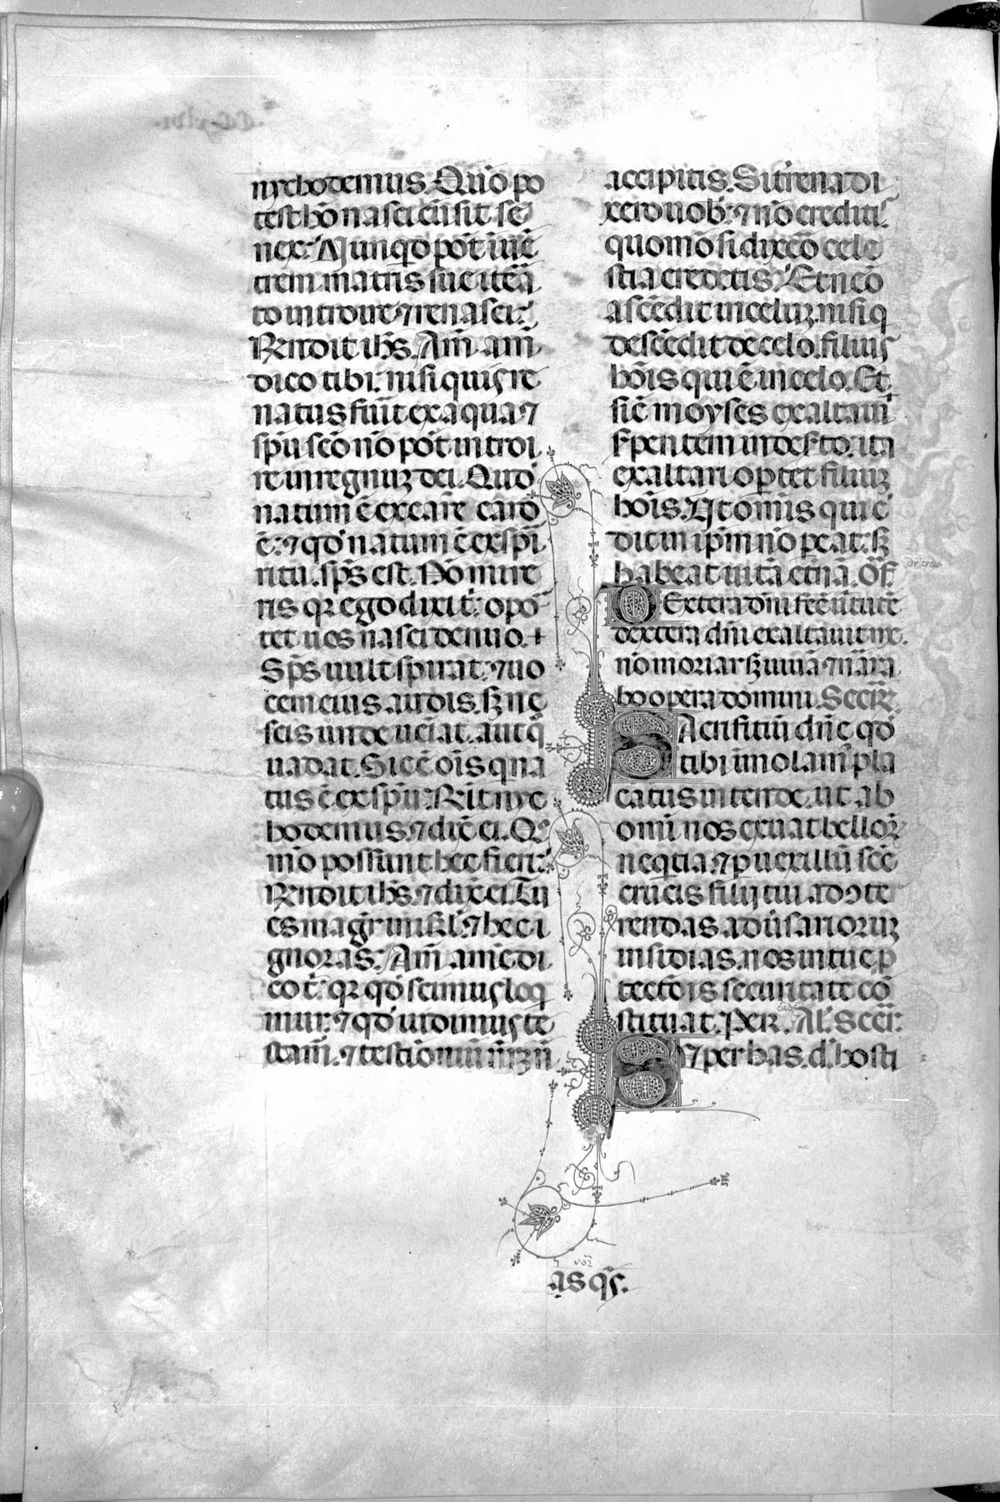 nychodemus. Quō po
test hō nasci cū sit se
nex: Nunqd pōt ī uē
trem matris sue iteȓ
to introire ⁊ renasci:
Rn̄dit ihs̄. Am̄ am̄
dico tibi: nisi quis re
natus fuīt ex aqua ⁊
sp̄u sc̄o nō pōt introi
re in regnuȝ dei. Quod
natum ē ex carē caro
ē: ⁊ qd̄ natum ē ex spī
ritu. sp̄s est. Nō mire
ris qr ego dixi t̄: opo
tet uos nasci denuo. +
Sp̄s uult spirat: ⁊ uo
cem eius audis. sȝ ne
scis unde ueīat. aut q̄
uadat. Sic ē oīs qui na
tus ē ex sp̄u: Rn̄t nyc
hodemus. ⁊ dix̄ ei. Qo
mō possunt hec fieri:
Rn̄dit ihs̄ ⁊ dix̄ ei. Tu
es magr̄ in isrl̄. ⁊ hec i
gnoras: Am̄ am̄ di
co t̄: qr qd̄ scimus loq
mur: ⁊ qd̄ uidimus te
stam̄. ⁊ testīoniū nr̄ȝ n̄
accipitis. Si t'rena di
xero uob̄: ⁊ nō creditis
quomō si dixeo cele
stia credetis? Et neō
ascēdit in celuȝ. nisi q
descēdit de celo. filius
hōīs qui ē in celo. Et
sic̄ moyses exaltauī
s̄pentem in des̄to. ita
exaltari op̄tet filiuȝ
hōīs. Ut omīs qui c̄
dit in ip̄m nō peat: sȝ
habeat uitā etn̄ā. Of̄
Dextera dn̄i fec̄ uītutē
dextera dn̄i exaltauit me.
nō moriar sȝ uiuā ⁊ narra
bo opera domini. Secr̄.
Sacrificiū dn̄e qd̄
tibi īmolam̄ pla
catus intende. ut ab
omī nos eruat belloꝝ
neq̄tia. ⁊ p uexillū sc̄e
crucis filij tui. ad ↄte
rendas aduīsarioruȝ
insidias. nos in tue p
tectōīs securitate cō
stituat. Per. Al'. Secr̄:
Super has. d. hosti
as qs̄.